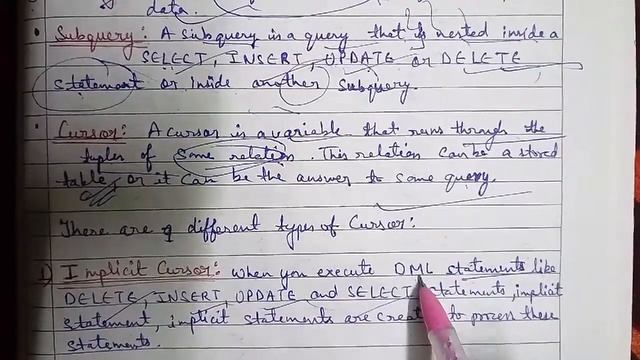 data.
• Subquery: A subquery is a query that is nested inside a
SELECT, INSERT, UPDATE or DELETE
statement or inside another subquery.
• Cursor: A cursor is a variable that runs through the
tuples of some relation. This relation can be a stored
table, or it can be the answer to some query.
There are 2 different types of Cursor:
1) Implicit Cursor: when you execute DML statements like
DELETE, INSERT, UPDATE and SELECT statements, implicit
statement, implicit statements are creat to process these
statements.